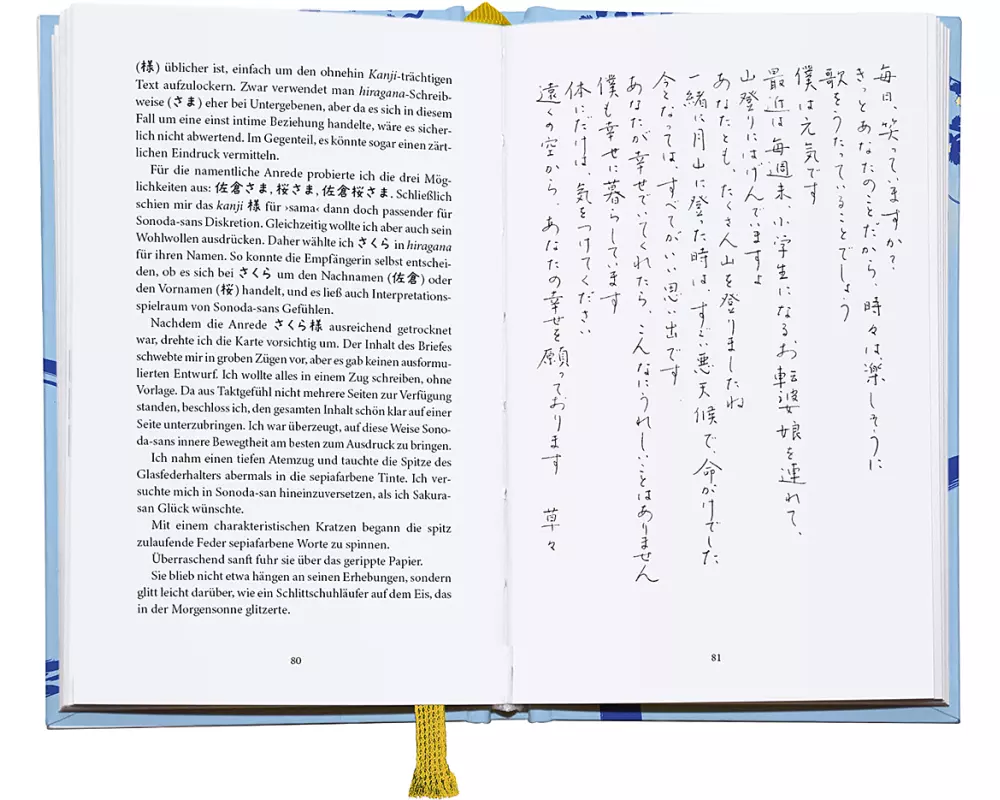 (様) üblicher ist, einfach um den ohnehin Kanji-trächtigen
Text aufzulockern. Zwar verwendet man hiragana-Schreib-
weise (さま) eher bei Untergebenen, aber da es sich in diesem
Fall um eine einst intime Beziehung handelte, wäre es sicher-
lich nicht abwertend. Im Gegenteil, es könnte sogar einen zärt-
lichen Eindruck vermitteln.
Für die namentliche Anrede probierte ich die drei Mög-
lichkeiten aus: 佐倉さま, 桜さま, 佐倉桜さま. Schließlich
schien mir das kanji 様 für ›sama‹ dann doch passender für
Sonoda-sans Diskretion. Gleichzeitig wollte ich aber auch sein
Wohlwollen ausdrücken. Daher wählte ich さくら in hiragana
für ihren Namen. So konnte die Empfängerin selbst entschei-
den, ob es sich bei さくら um den Nachnamen (佐倉) oder
den Vornamen (桜) handelt, und es ließ auch Interpretations-
spielraum von Sonoda-sans Gefühlen.
Nachdem die Anrede さくら様 ausreichend getrocknet
war, drehte ich die Karte vorsichtig um. Der Inhalt des Briefes
schwebte mir in groben Zügen vor, aber es gab keinen ausformu-
lierten Entwurf. Ich wollte alles in einem Zug schreiben, ohne
Vorlage. Da aus Taktgefühl nicht mehrere Seiten zur Verfügung
standen, beschloss ich, den gesamten Inhalt schön klar auf einer
Seite unterzubringen. Ich war überzeugt, auf diese Weise Sono-
da-sans innere Bewegtheit am besten zum Ausdruck zu bringen.
Ich nahm einen tiefen Atemzug und tauchte die Spitze des
Glasfederhalters abermals in die sepiafarbene Tinte. Ich ver-
suchte mich in Sonoda-san hineinzuversetzen, als ich Sakura-
san Glück wünschte.
Mit einem charakteristischen Kratzen begann die spitz
zulaufende Feder sepiafarbene Worte zu spinnen.
Überraschend sanft fuhr sie über das gerippte Papier.
Sie blieb nicht etwa hängen an seinen Erhebungen, sondern
glitt leicht darüber, wie ein Schlittschuhläufer auf dem Eis, das
in der Morgensonne glitzerte.
80
毎日、笑っていますか?
きっとあなたのことだから、時々は楽しそうに
歌をうたっていることでしょう
僕は元気です
最近は毎週末、小学生になるお転婆娘を連れて、
山登りにはげんでいますよ
あなたとも、たくさん山を登りましたね
一緒に月山に登った時は、すごい悪天候で、命がけでした
今となっては、すべてがいい思い出です
あなたが幸せでいてくれたら、こんなにうれしいことはありません
僕も幸せに暮らしています
体にだけは、気をつけてください
遠くの空から、あなたの幸せを願っております 草々
81